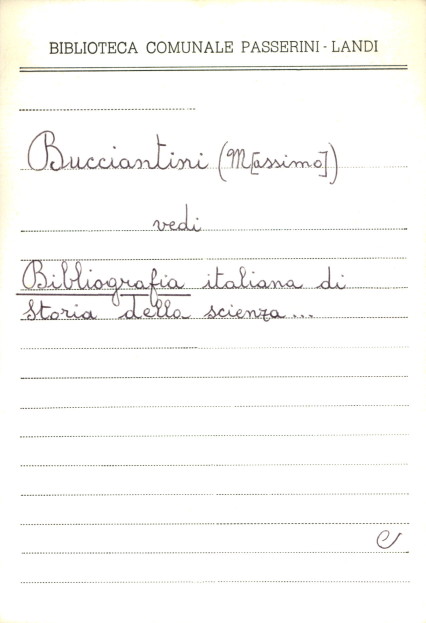 BIBLIOTECA COMUNALE PASSERINI - LANDI
Bucciantini (M[assimo])
vedi
Bibliografia italiana di
Storia della scienza...